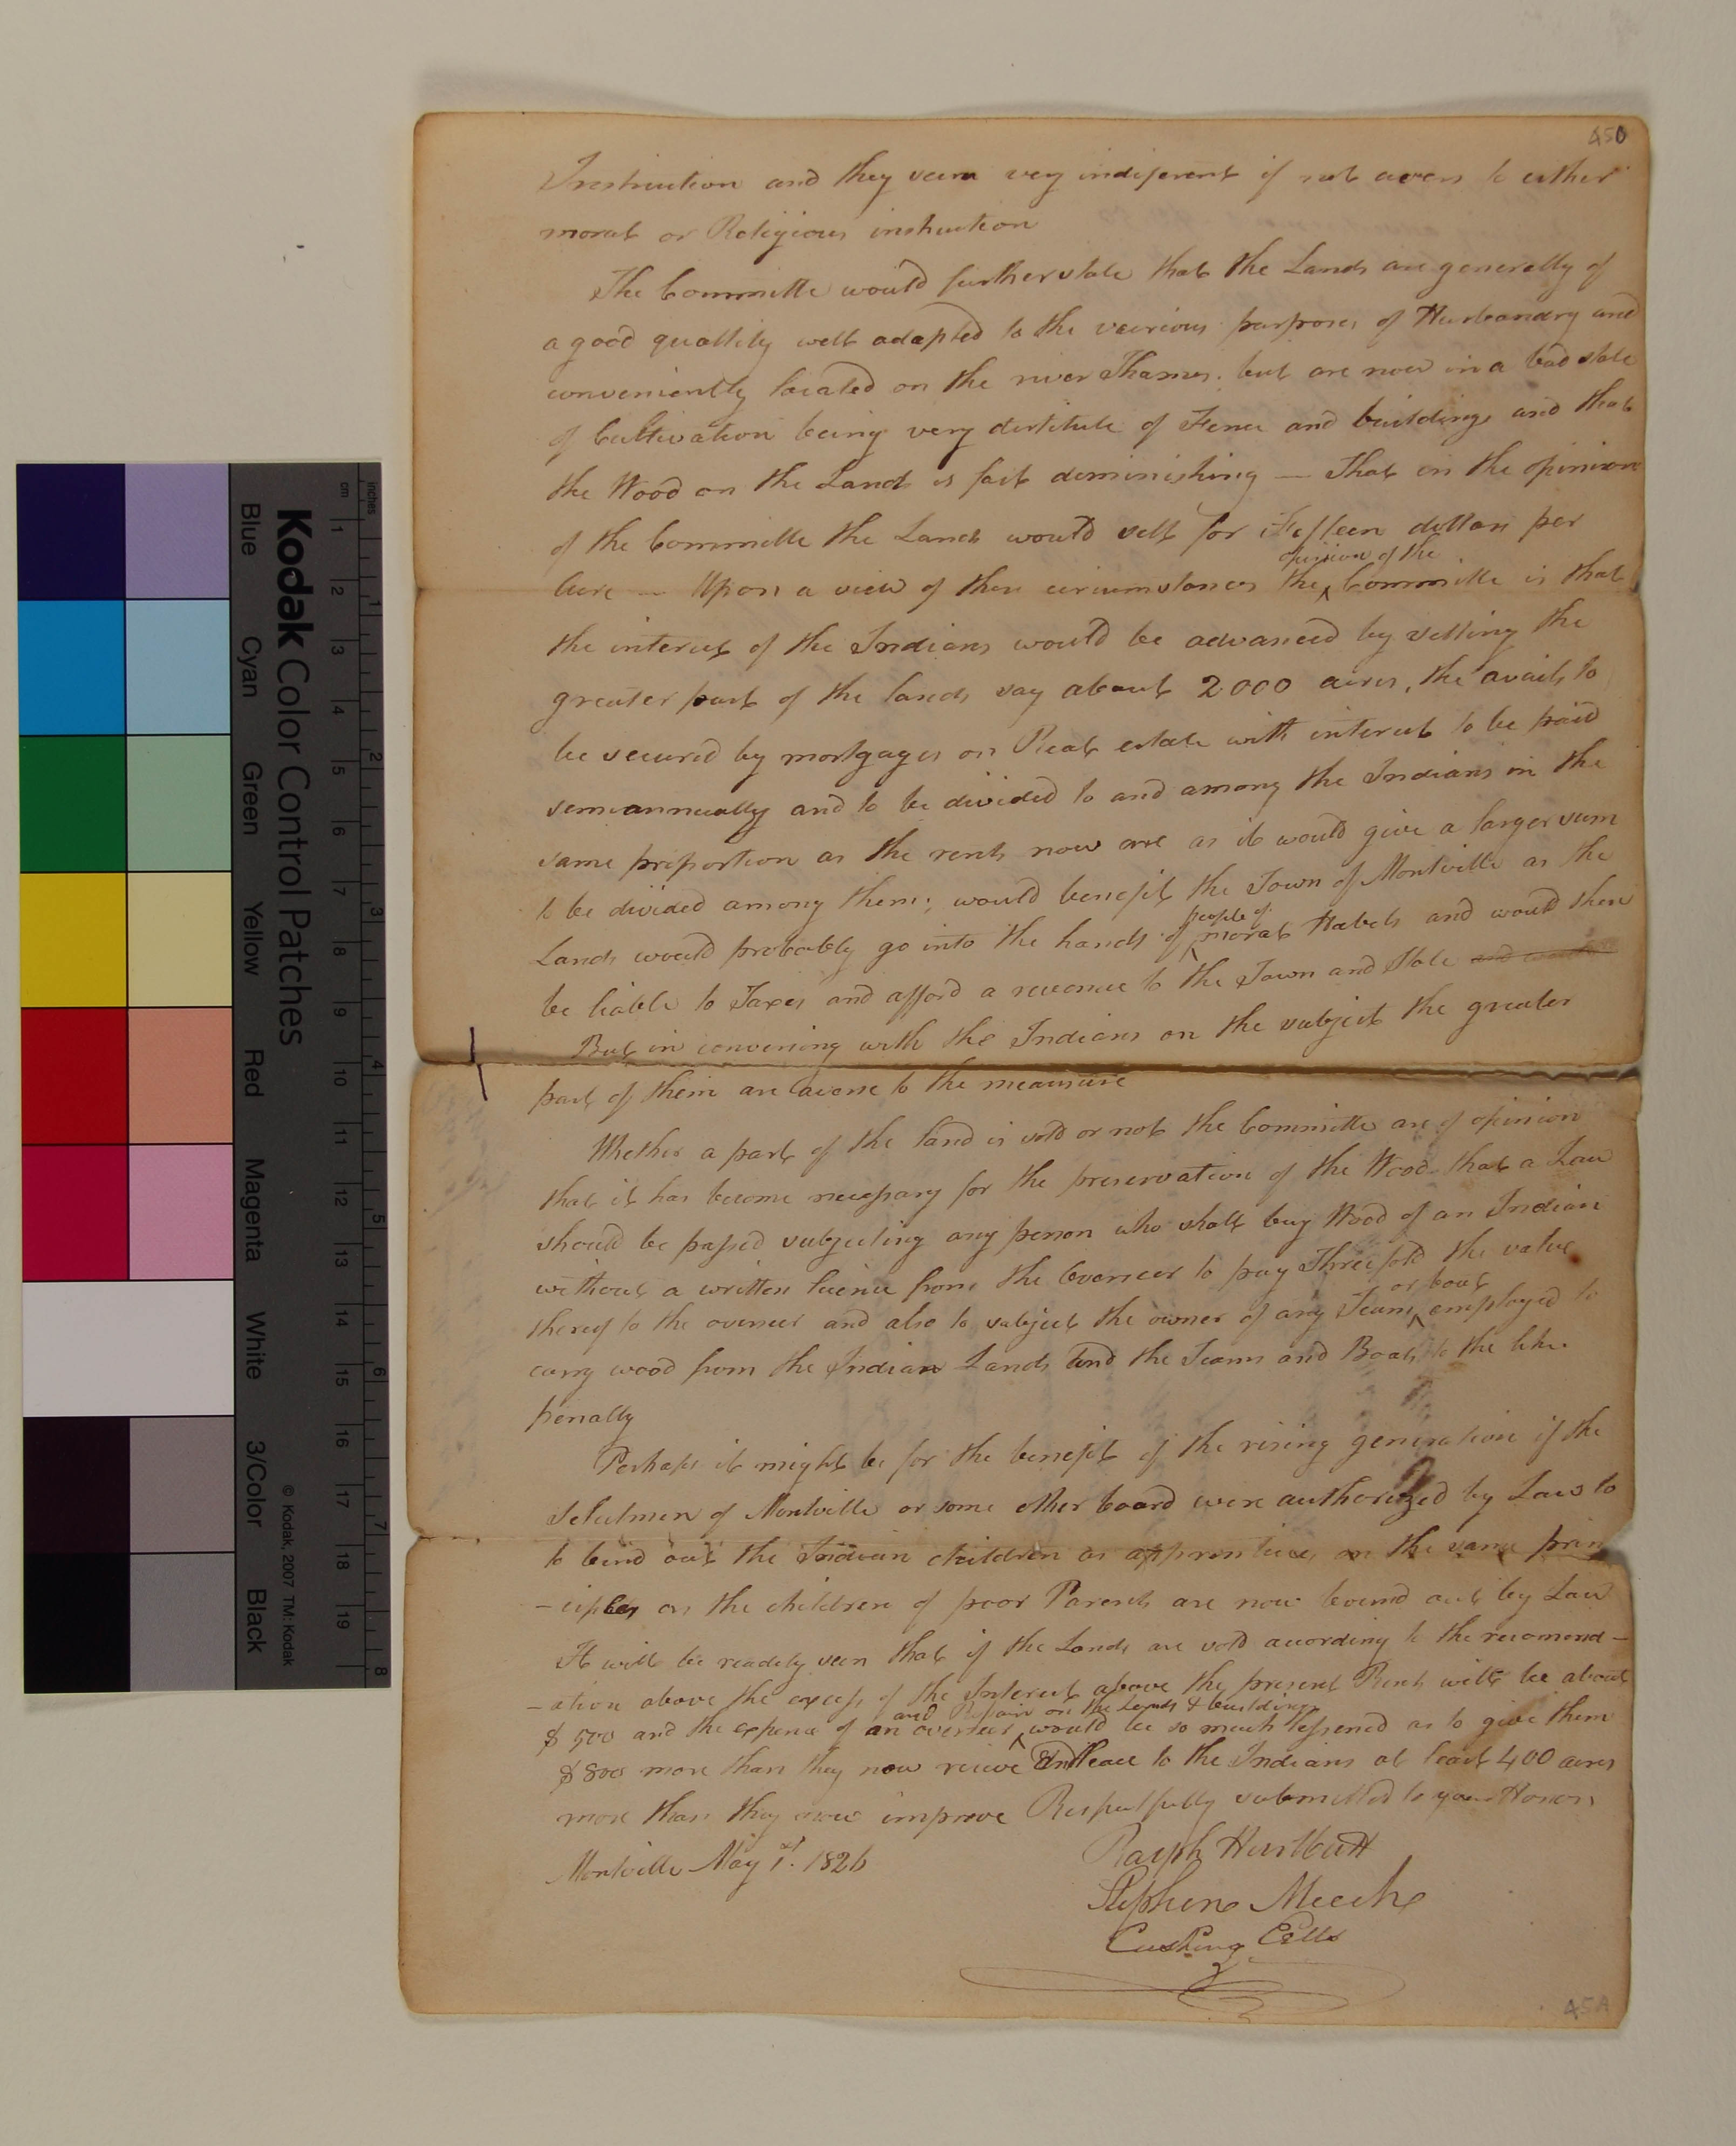 450
Instruction and they seem very indiferent if not avers to either
moral or Religious instruction
The Committe would further state that the Lands are generally of
a good quallity well adapted to the various purposes of Husbandry and
conveniently located on the river Thames. but are now in a bad state
of Cultivation being very distitute of Fence and buildings and that
the Wood on the Land is fast deminishing — That in the opinion
of the Committe the Lands would sell for Fifteen dollars per
Acre — Upon a view of these circumstances the opinion of the Committe is that
the interest of the Indians would be advanced by selling the
greater part of the lands say about 2000 acres, the avails to
be secured by mortgages on Real estate with interest to be paid
semiannually and to be divided to and among the Indians in the
same proportion as the rents now are as it would give a larger sum
to be divided among them; would benefit the Town of Montville as the
Lands would probably go into the hands of people of moral Habits and would then
be liable to Taxes and afford a revenue to the Town and State and would
But in convening with the Indians on the subject the greater
part of them are averse to the measure
Whether a part of the land is sold or not the Committe are of opinion
that it has become necessary for the preservation of the Wood that a Law
should be passed subjecting any person who shall buy Wood of an Indian
without a written licence from the Overseer to pay Threefold the value
thereof to the overseer and also to subject the owner of any Team or boat employed to
carry wood from the Indian Lands and the Teams and Boats to the like
penalty
Perhaps it might be for the benefit of the rising generation if the
Selectmen of Montville or some other board were authorized by Law to
to bind out the Indian children as apprentices, on the same prin
-ciples as the children of poor Parents are now bound out by Law
It will be readily seen that if the Lands are sold according to the recomend-
-ation above the excess of the Interest above the present Rents will be about
$500 and the expence of an overseer and Repairs on the Lands & buildings would be so much lessened as to give them
$800 more than they now receive and leave to the Indians at least 400 acres
more than they now improve Respectfully submitted to your Honors
Montville May 1st. 1826
Ralph Hurlbutt
Stephen Meech
Cushing Eells
45A
Kodak Color Control Patches
© Kodak, 2007 TM: Kodak
Blue Cyan Green Yellow Red Magenta White 3/Color Black
inches 1 2 3 4 5 6 7 8
cm 1 2 3 4 5 6 7 8 9 10 11 12 13 14 15 16 17 18 19